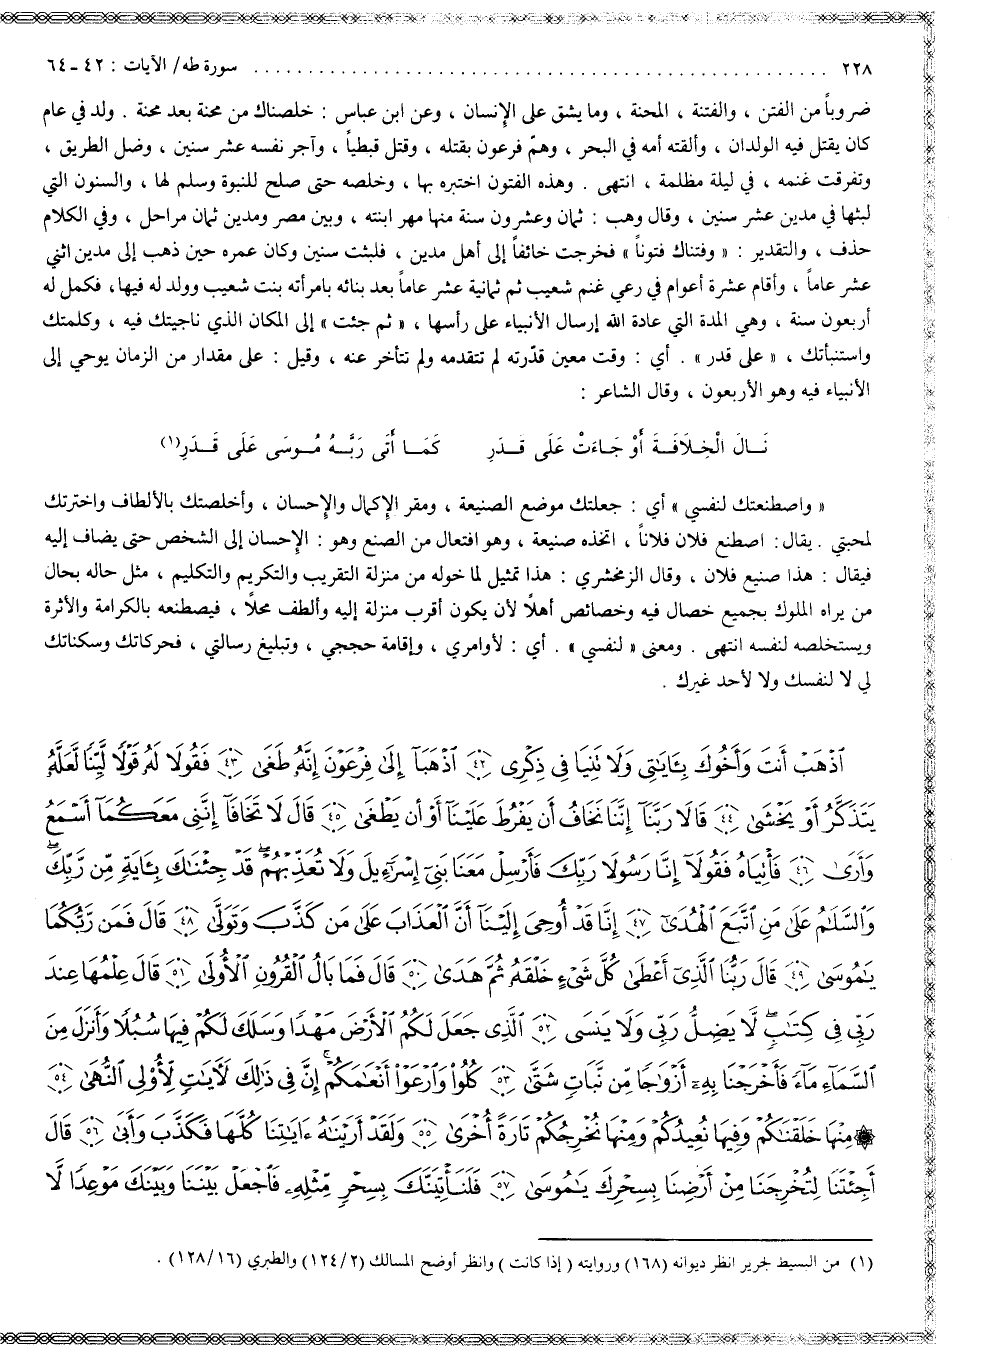 ٢٢٨ ................................................ سورة طه/ الآيات : ٤٢ - ٦٤
ضروباً من الفتن ، والفتنة ، المحنة ، وما يشق على الإِنسان ، وعن ابن عباس : خلصناك من محنة بعد محنة . ولد في عام
كان يقتل فيه الولدان ، وألقته أمه في البحر ، وهمّ فرعون بقتله ، وقتل قبطياً ، وآجر نفسه عشر سنين ، وضل الطريق ،
وتفرقت غنمه ، في ليلة مظلمة ، انتهى . وهذه الفتون اختبره بها ، وخلصه حتى صلح للنبوة وسلم لها ، والسنون التي
لبثها في مدين عشر سنين ، وقال وهب : ثمان وعشرون سنة منها مهر ابنته ، وبين مصر ومدين ثمان مراحل ، وفي الكلام
حذف ، والتقدير : « وفتناك فتوناً » فخرجت خائفاً إلى أهل مدين ، فلبثت سنين وكان عمره حين ذهب إلى مدين اثني
عشر عاماً ، وأقام عشرة أعوام في رعي غنم شعيب ثم ثمانية عشر عاماً بعد بنائه بامرأته بنت شعيب وولد له فيها، فكمل له
أربعون سنة ، وهي المدة التي عادة الله إرسال الأنبياء على رأسها ، « ثم جئت » إلى المكان الذي ناجيتك فيه ، وكلمتك
واستنبأتك ، « على قدر » . أي : وقت معين قدّرته لم تتقدمه ولم تتأخر عنه ، وقيل : على مقدار من الزمان يوحي إلى
الأنبياء فيه وهو الأربعون ، وقال الشاعر :
نَـالَ الْخِـلَافَـةَ أَوْ جَـاءَتْ عَلَى قَـدَرٍ كَمَـا أَتَى رَبَّـهُ مُـوسَى عَلَى قَـدَرِ(١)
« واصطنعتك لنفسي » أي : جعلتك موضع الصنيعة ، ومقر الإِكمال والإِحسان ، وأخلصتك بالألطاف واخترتك
لمحبتي . يقال: اصطنع فلان فلاناً ، اتخذه صنيعة ، وهو افتعال من الصنع وهو : الإِحسان إلى الشخص حتى يضاف إليه
فيقال : هذا صنيع فلان ، وقال الزمخشري : هذا تمثيل لما خوله من منزلة التقريب والتكريم والتكليم ، مثل حاله بحال
من يراه الملوك بجميع خصال فيه وخصائص أهلاً لأن يكون أقرب منزلة إليه وألطف محلاً ، فيصطنعه بالكرامة والأثرة
ويستخلصه لنفسه انتهى . ومعنى « لنفسي » . أي : لأوامري ، وإقامة حججي ، وتبليغ رسالتي ، فحركاتك وسكناتك
لي لا لنفسك ولا لأحد غيرك .
ٱذْهَبْ أَنتَ وَأَخُوكَ بِـَٔايَٰتِى وَلَا تَنِيَا فِى ذِكْرِى ﴿٤٢﴾ ٱذْهَبَآ إِلَىٰ فِرْعَوْنَ إِنَّهُۥ طَغَىٰ ﴿٤٣﴾ فَقُولَا لَهُۥ قَوْلًا لَّيِّنًا لَّعَلَّهُۥ
يَتَذَكَّرُ أَوْ يَخْشَىٰ ﴿٤٤﴾ قَالَا رَبَّنَآ إِنَّنَا نَخَافُ أَن يَفْرُطَ عَلَيْنَآ أَوْ أَن يَطْغَىٰ ﴿٤٥﴾ قَالَ لَا تَخَافَآ إِنَّنِى مَعَكُمَآ أَسْمَعُ
وَأَرَىٰ ﴿٤٦﴾ فَأْتِيَاهُ فَقُولَآ إِنَّا رَسُولَا رَبِّكَ فَأَرْسِلْ مَعَنَا بَنِىٓ إِسْرَٰٓءِيلَ وَلَا تُعَذِّبْهُمْ ۖ قَدْ جِئْنَٰكَ بِـَٔايَةٍ مِّن رَّبِّكَ ۖ
وَٱلسَّلَٰمُ عَلَىٰ مَنِ ٱتَّبَعَ ٱلْهُدَىٰٓ ﴿٤٧﴾ إِنَّا قَدْ أُوحِىَ إِلَيْنَآ أَنَّ ٱلْعَذَابَ عَلَىٰ مَن كَذَّبَ وَتَوَلَّىٰ ﴿٤٨﴾ قَالَ فَمَن رَّبُّكُمَا
يَٰمُوسَىٰ ﴿٤٩﴾ قَالَ رَبُّنَا ٱلَّذِىٓ أَعْطَىٰ كُلَّ شَىْءٍ خَلْقَهُۥ ثُمَّ هَدَىٰ ﴿٥٠﴾ قَالَ فَمَا بَالُ ٱلْقُرُونِ ٱلْأُولَىٰ ﴿٥١﴾ قَالَ عِلْمُهَا عِندَ
رَبِّى فِى كِتَٰبٍ ۖ لَّا يَضِلُّ رَبِّى وَلَا يَنسَى ﴿٥٢﴾ ٱلَّذِى جَعَلَ لَكُمُ ٱلْأَرْضَ مَهْدًا وَسَلَكَ لَكُمْ فِيهَا سُبُلًا وَأَنزَلَ مِنَ
ٱلسَّمَآءِ مَآءً فَأَخْرَجْنَا بِهِۦٓ أَزْوَٰجًا مِّن نَّبَاتٍ شَتَّىٰ ﴿٥٣﴾ كُلُوا۟ وَٱرْعَوْا۟ أَنْعَٰمَكُمْ ۗ إِنَّ فِى ذَٰلِكَ لَـَٔايَٰتٍ لِّأُو۟لِى ٱلنُّهَىٰ ﴿٥٤﴾
۞ مِنْهَا خَلَقْنَٰكُمْ وَفِيهَا نُعِيدُكُمْ وَمِنْهَا نُخْرِجُكُمْ تَارَةً أُخْرَىٰ ﴿٥٥﴾ وَلَقَدْ أَرَيْنَٰهُ ءَايَٰتِنَا كُلَّهَا فَكَذَّبَ وَأَبَىٰ ﴿٥٦﴾ قَالَ
أَجِئْتَنَا لِتُخْرِجَنَا مِنْ أَرْضِنَا بِسِحْرِكَ يَٰمُوسَىٰ ﴿٥٧﴾ فَلَنَأْتِيَنَّكَ بِسِحْرٍ مِّثْلِهِۦ فَٱجْعَلْ بَيْنَنَا وَبَيْنَكَ مَوْعِدًا لَّا
(١) من البسيط لجرير انظر ديوانه (١٦٨) وروايته ( إذا كانت ) وانظر أوضح المسالك (١٢٤/٢) والطبري (١٢٨/١٦) .